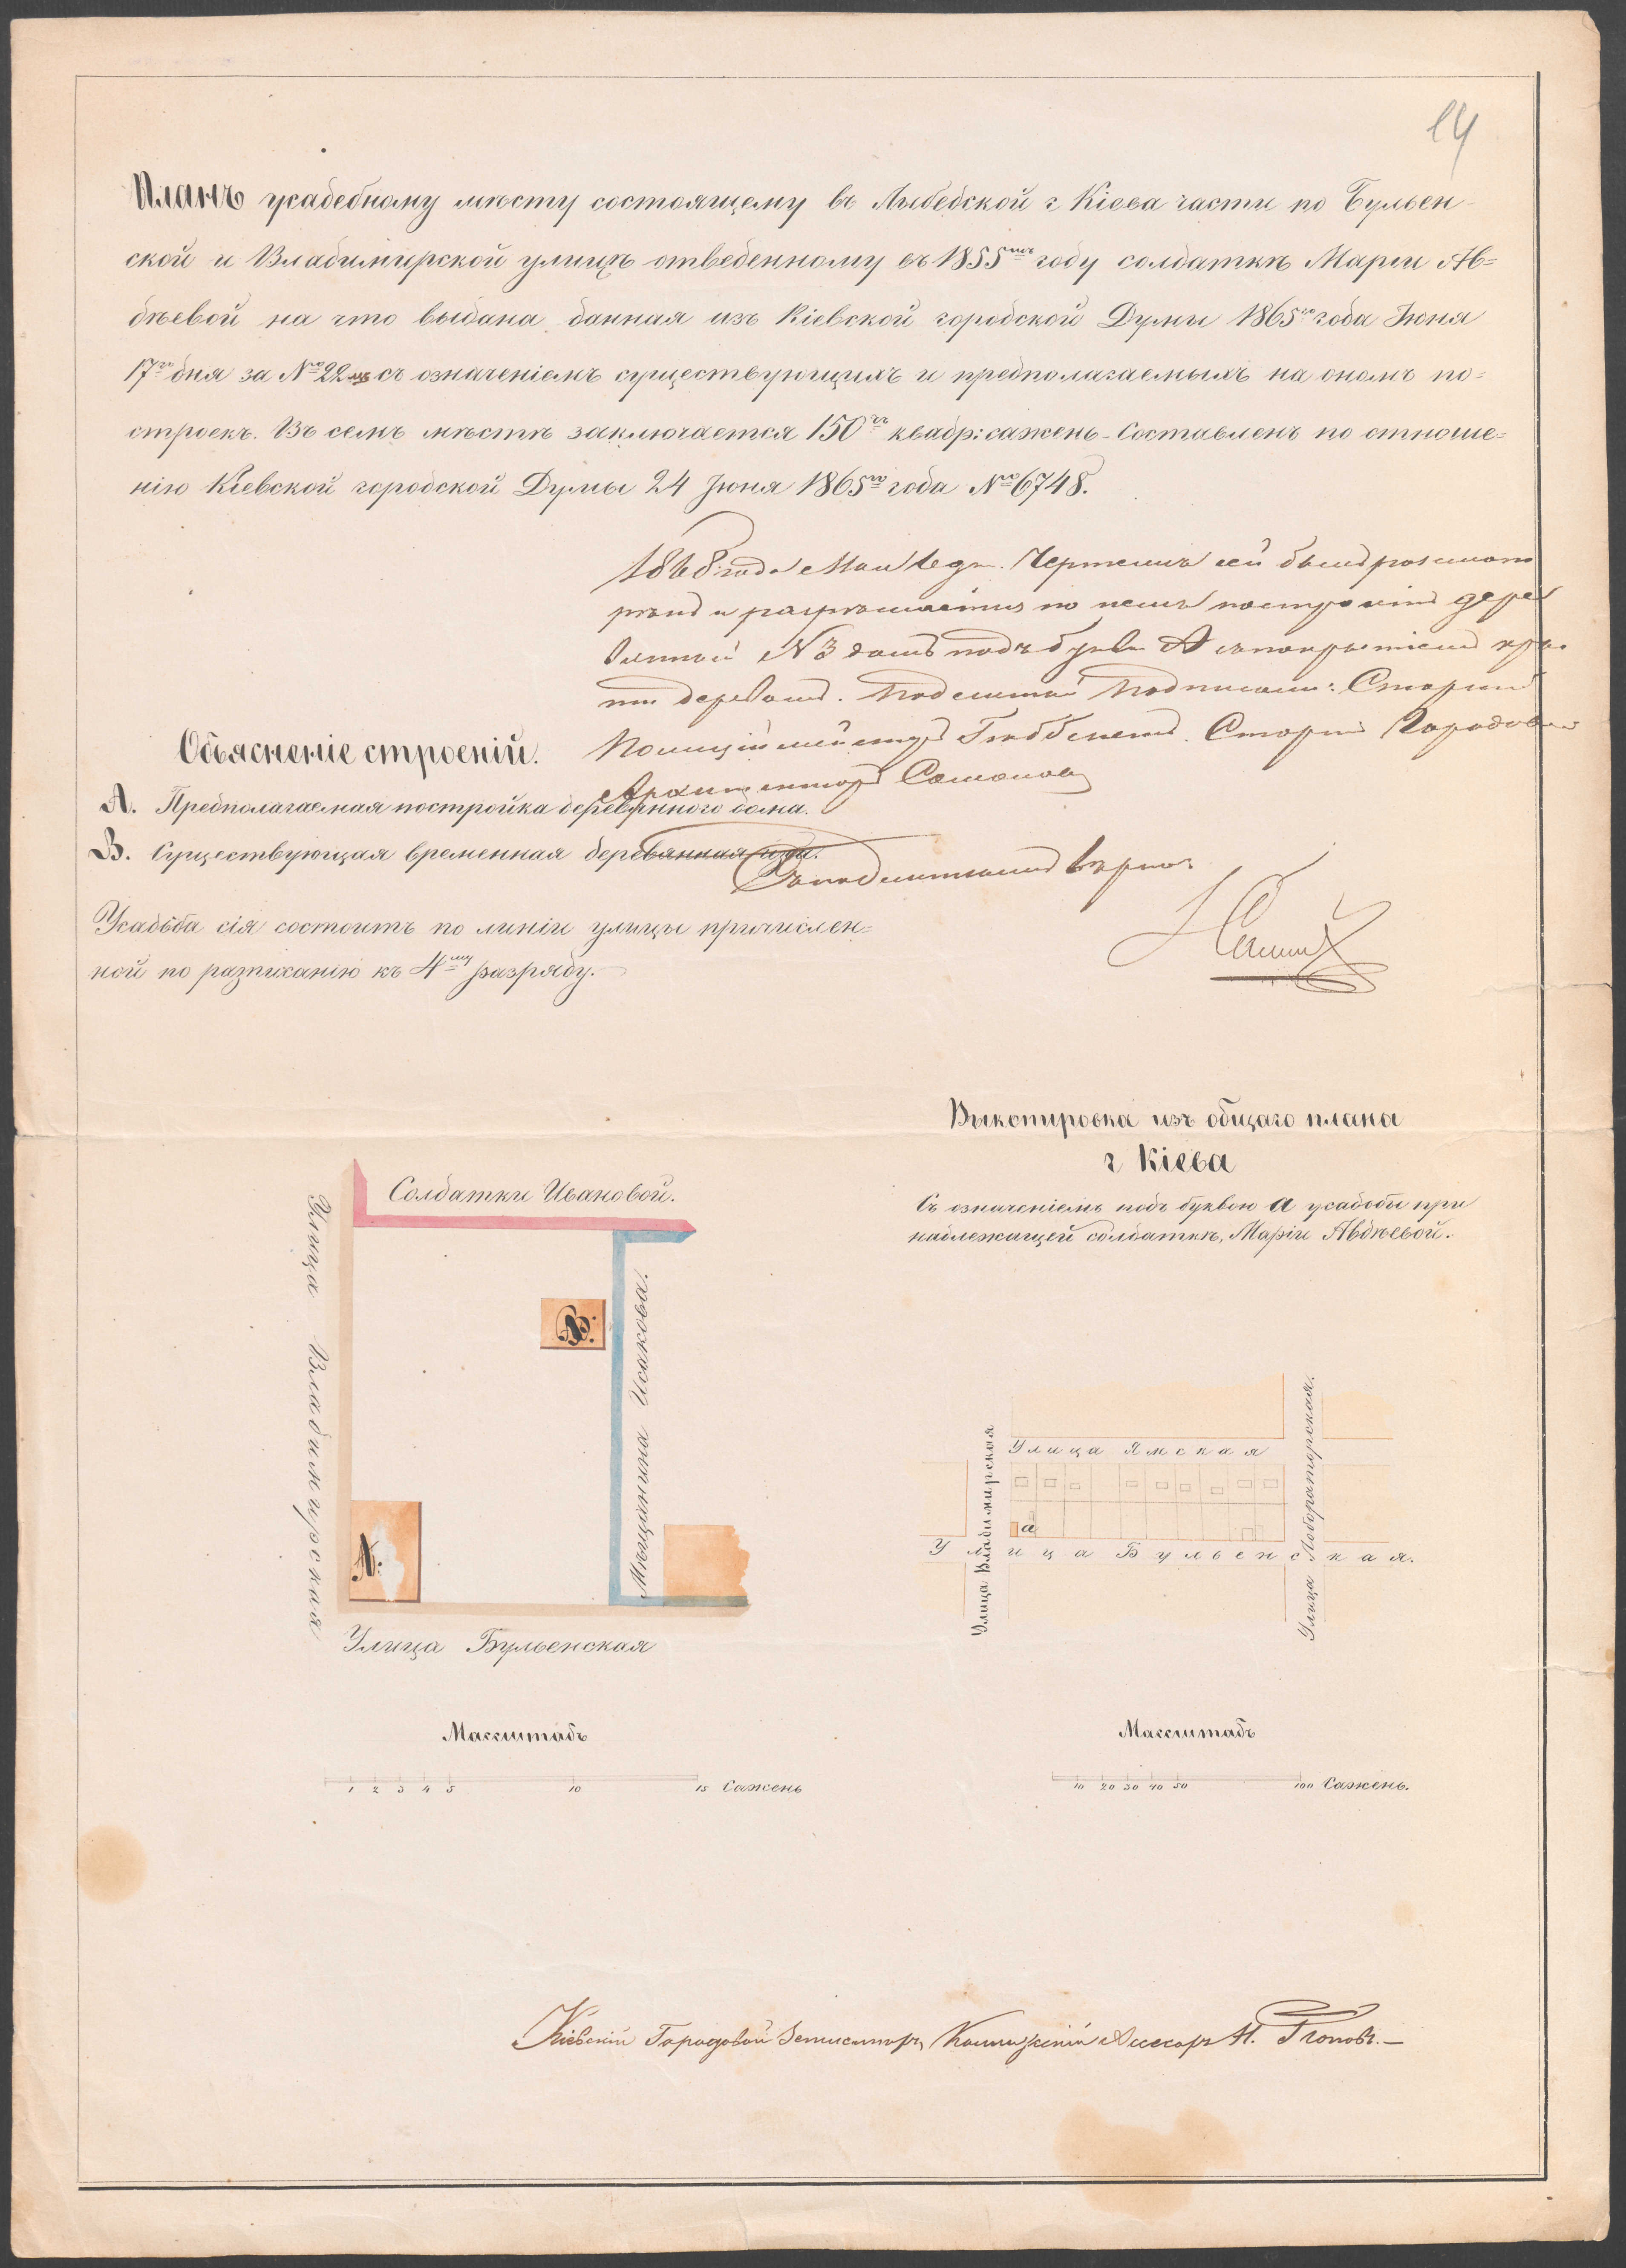 14
Планъ усадебному мѣсту состоящему въ Лыбедской г Кіева части по Бульен-
ской и Владимирской улицѣ отведенному въ 1855мъ году солдаткѣ Маріи Ав=
дѣевой на что выдана данная изъ Кіевской городской Думы 1865го года Іюня
17го дня за № 22 съ означеніемъ существующихъ и предполагаемыхъ на ономъ по=
строекъ. Въ семъ мѣстѣ заключается 150ть квадр: сажень - Составленъ по отноше=
нію Кіевской городской Думы 24 Іюня 1865го года № 6748.
1868 года Мая дня. Чертежъ сей былъ разсмот
рѣнъ и разрѣшается по немъ построить дере
вянный № 3 домъ подъ букв. А съ покрытіемъ кры
ши деревомъ. Подлинный подписали: Старшій
Полиціймейстеръ Старшій Городовой
Архитекторъ
Объясненіе строеній.
А. Предполагаемая постройка деревяннаго дома.
В. Существующая временная деревянная изба.
Съ подлиннымъ вѣрно:
Усадьба сія состоитъ по линіи улицы причислен=
ной по росписанію къ 4му разряду.
Выкопировка изъ общаго плана
г Кіева
Съ означеніемъ подъ буквою а усадьбы при
надлежащей солдаткѣ, Маріи Авдѣевой.
Солдатки Ивановой.
Улица Владимирская
В.
Мѣщанина Исакова.
А.
Улица Бульенская
Улица Ямская
Улица Владимирская
Улица Лобораторская.
а
Улица Бульенская.
Масштабъ
1 2 3 4 5 10 15 Сажень
Масштабъ
10 20 30 40 50 100 Сажень.
Кіевскій Городовой Землемѣръ, Коллежскій Асесоръ